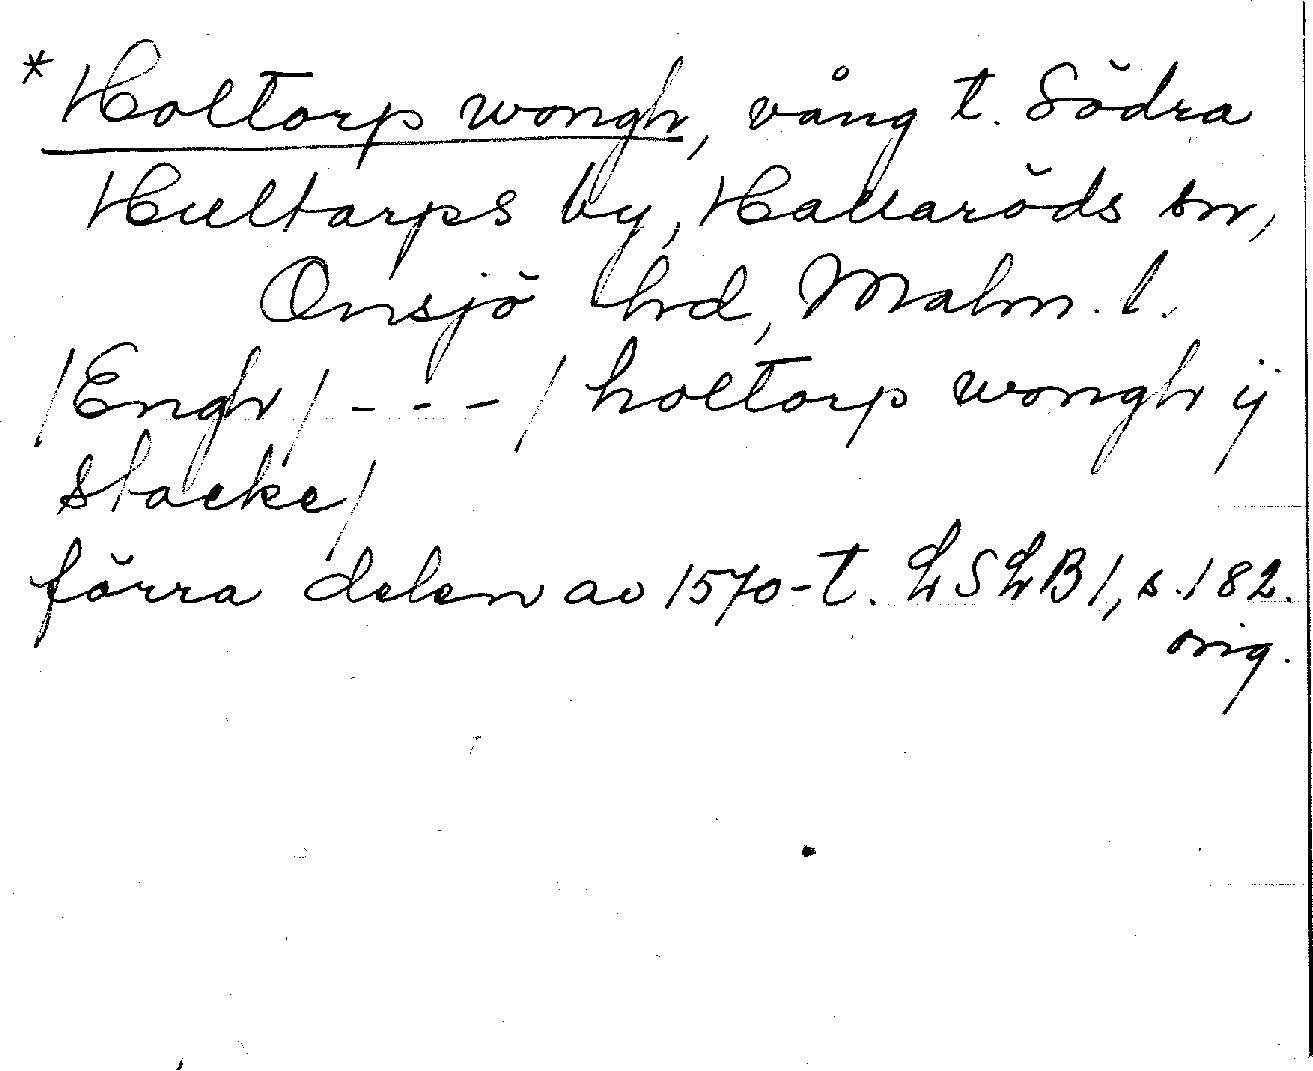 * Holtorp wongh, vång t. Södra
Hultarps by, Hallaröds sn,
Onsjö hrd, Malm. l.
/Engh/ - - - / holtorp wongh ij
stacke/
förra delen av 1570-t. LSLB 1, s. 182.
orig.